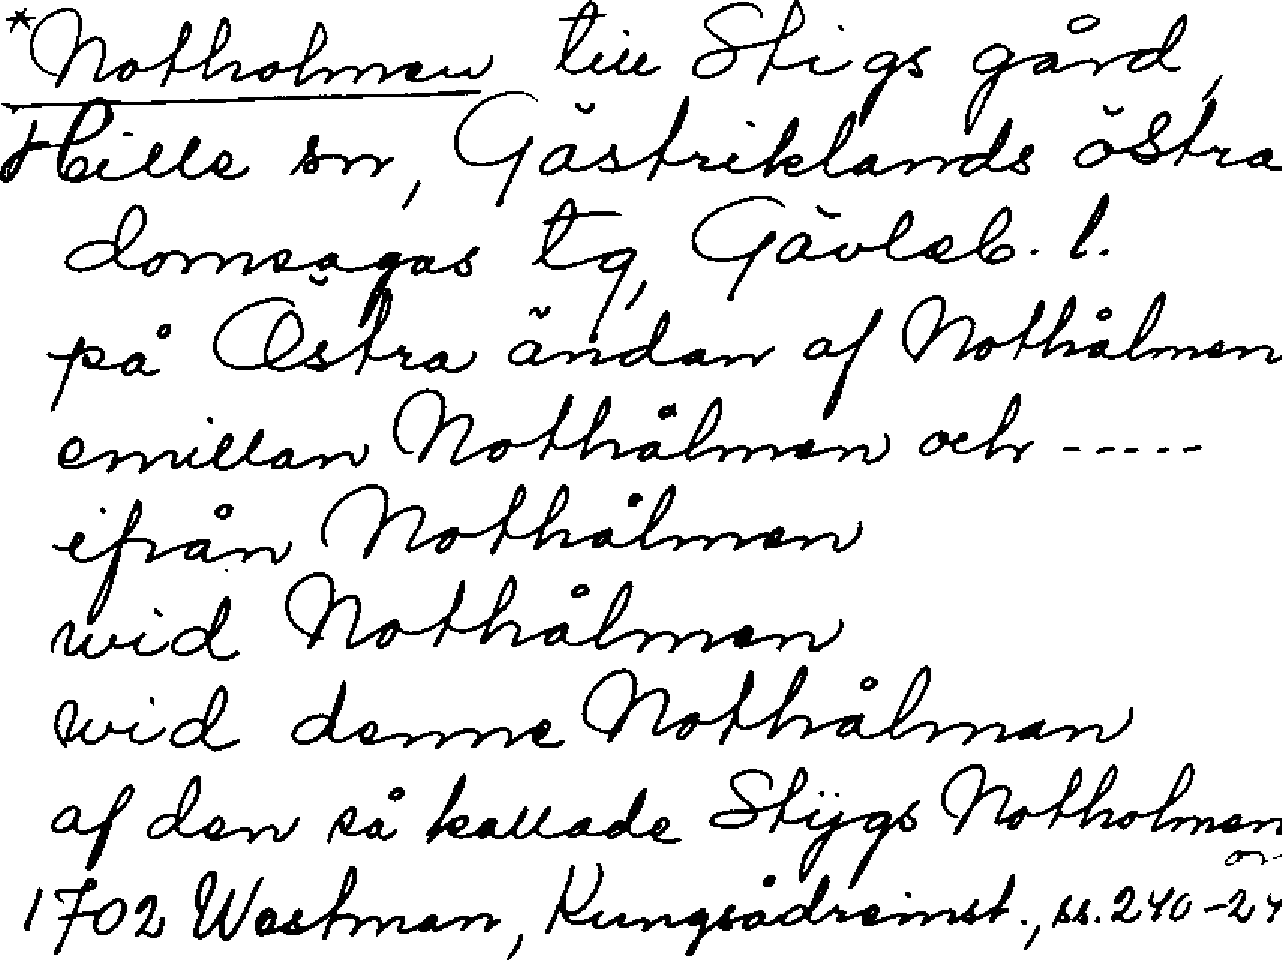 *Notholmen till Stigs gård,
Hille sn, Gästriklands östra
domsagas tg, Gävleb. l.
på Östra ändan af Nothålmen
emillan Nothålmen och -----
ifrån Nothålmen
wid Nothålmen
wid denne Nothålmen
af den så kallade Stÿgs Notholmen
1702 Westman, Kungsådreinst., ss. 240-24